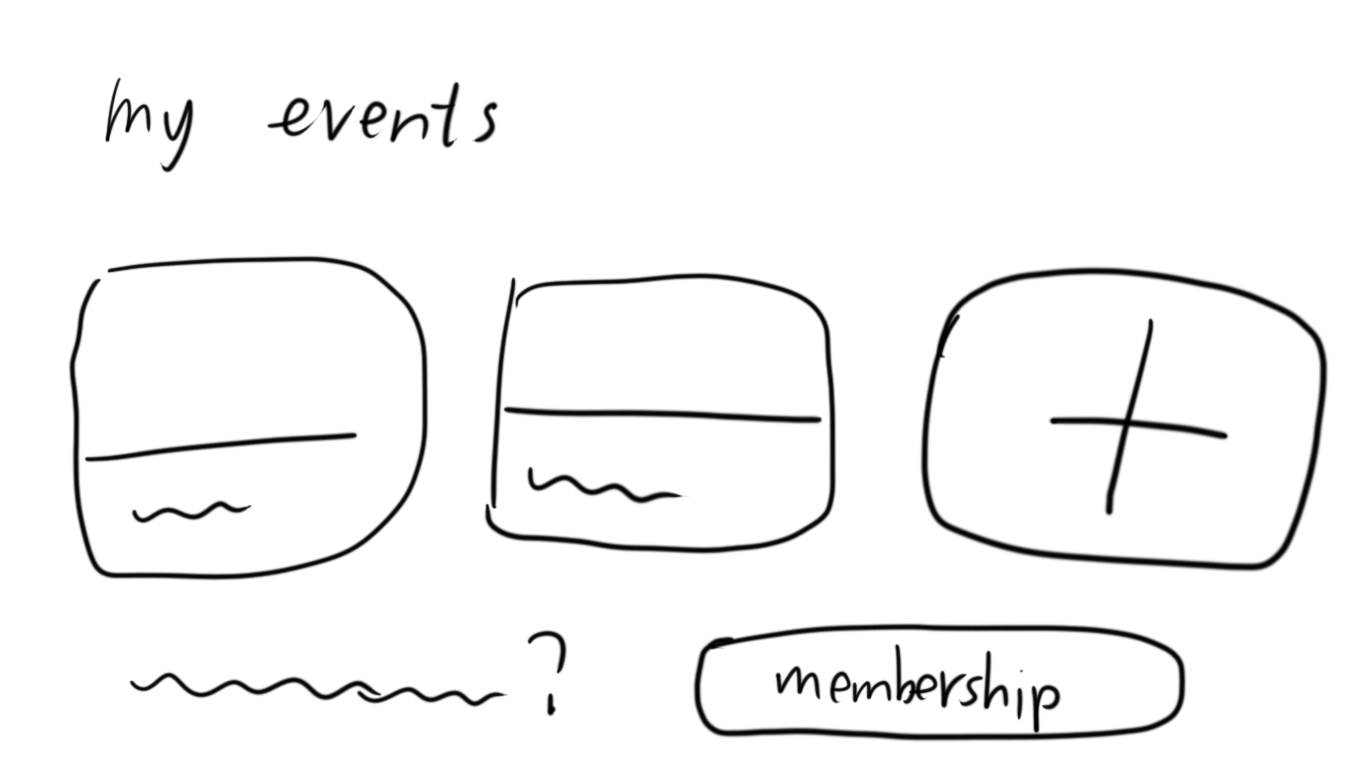 my events
?
membership